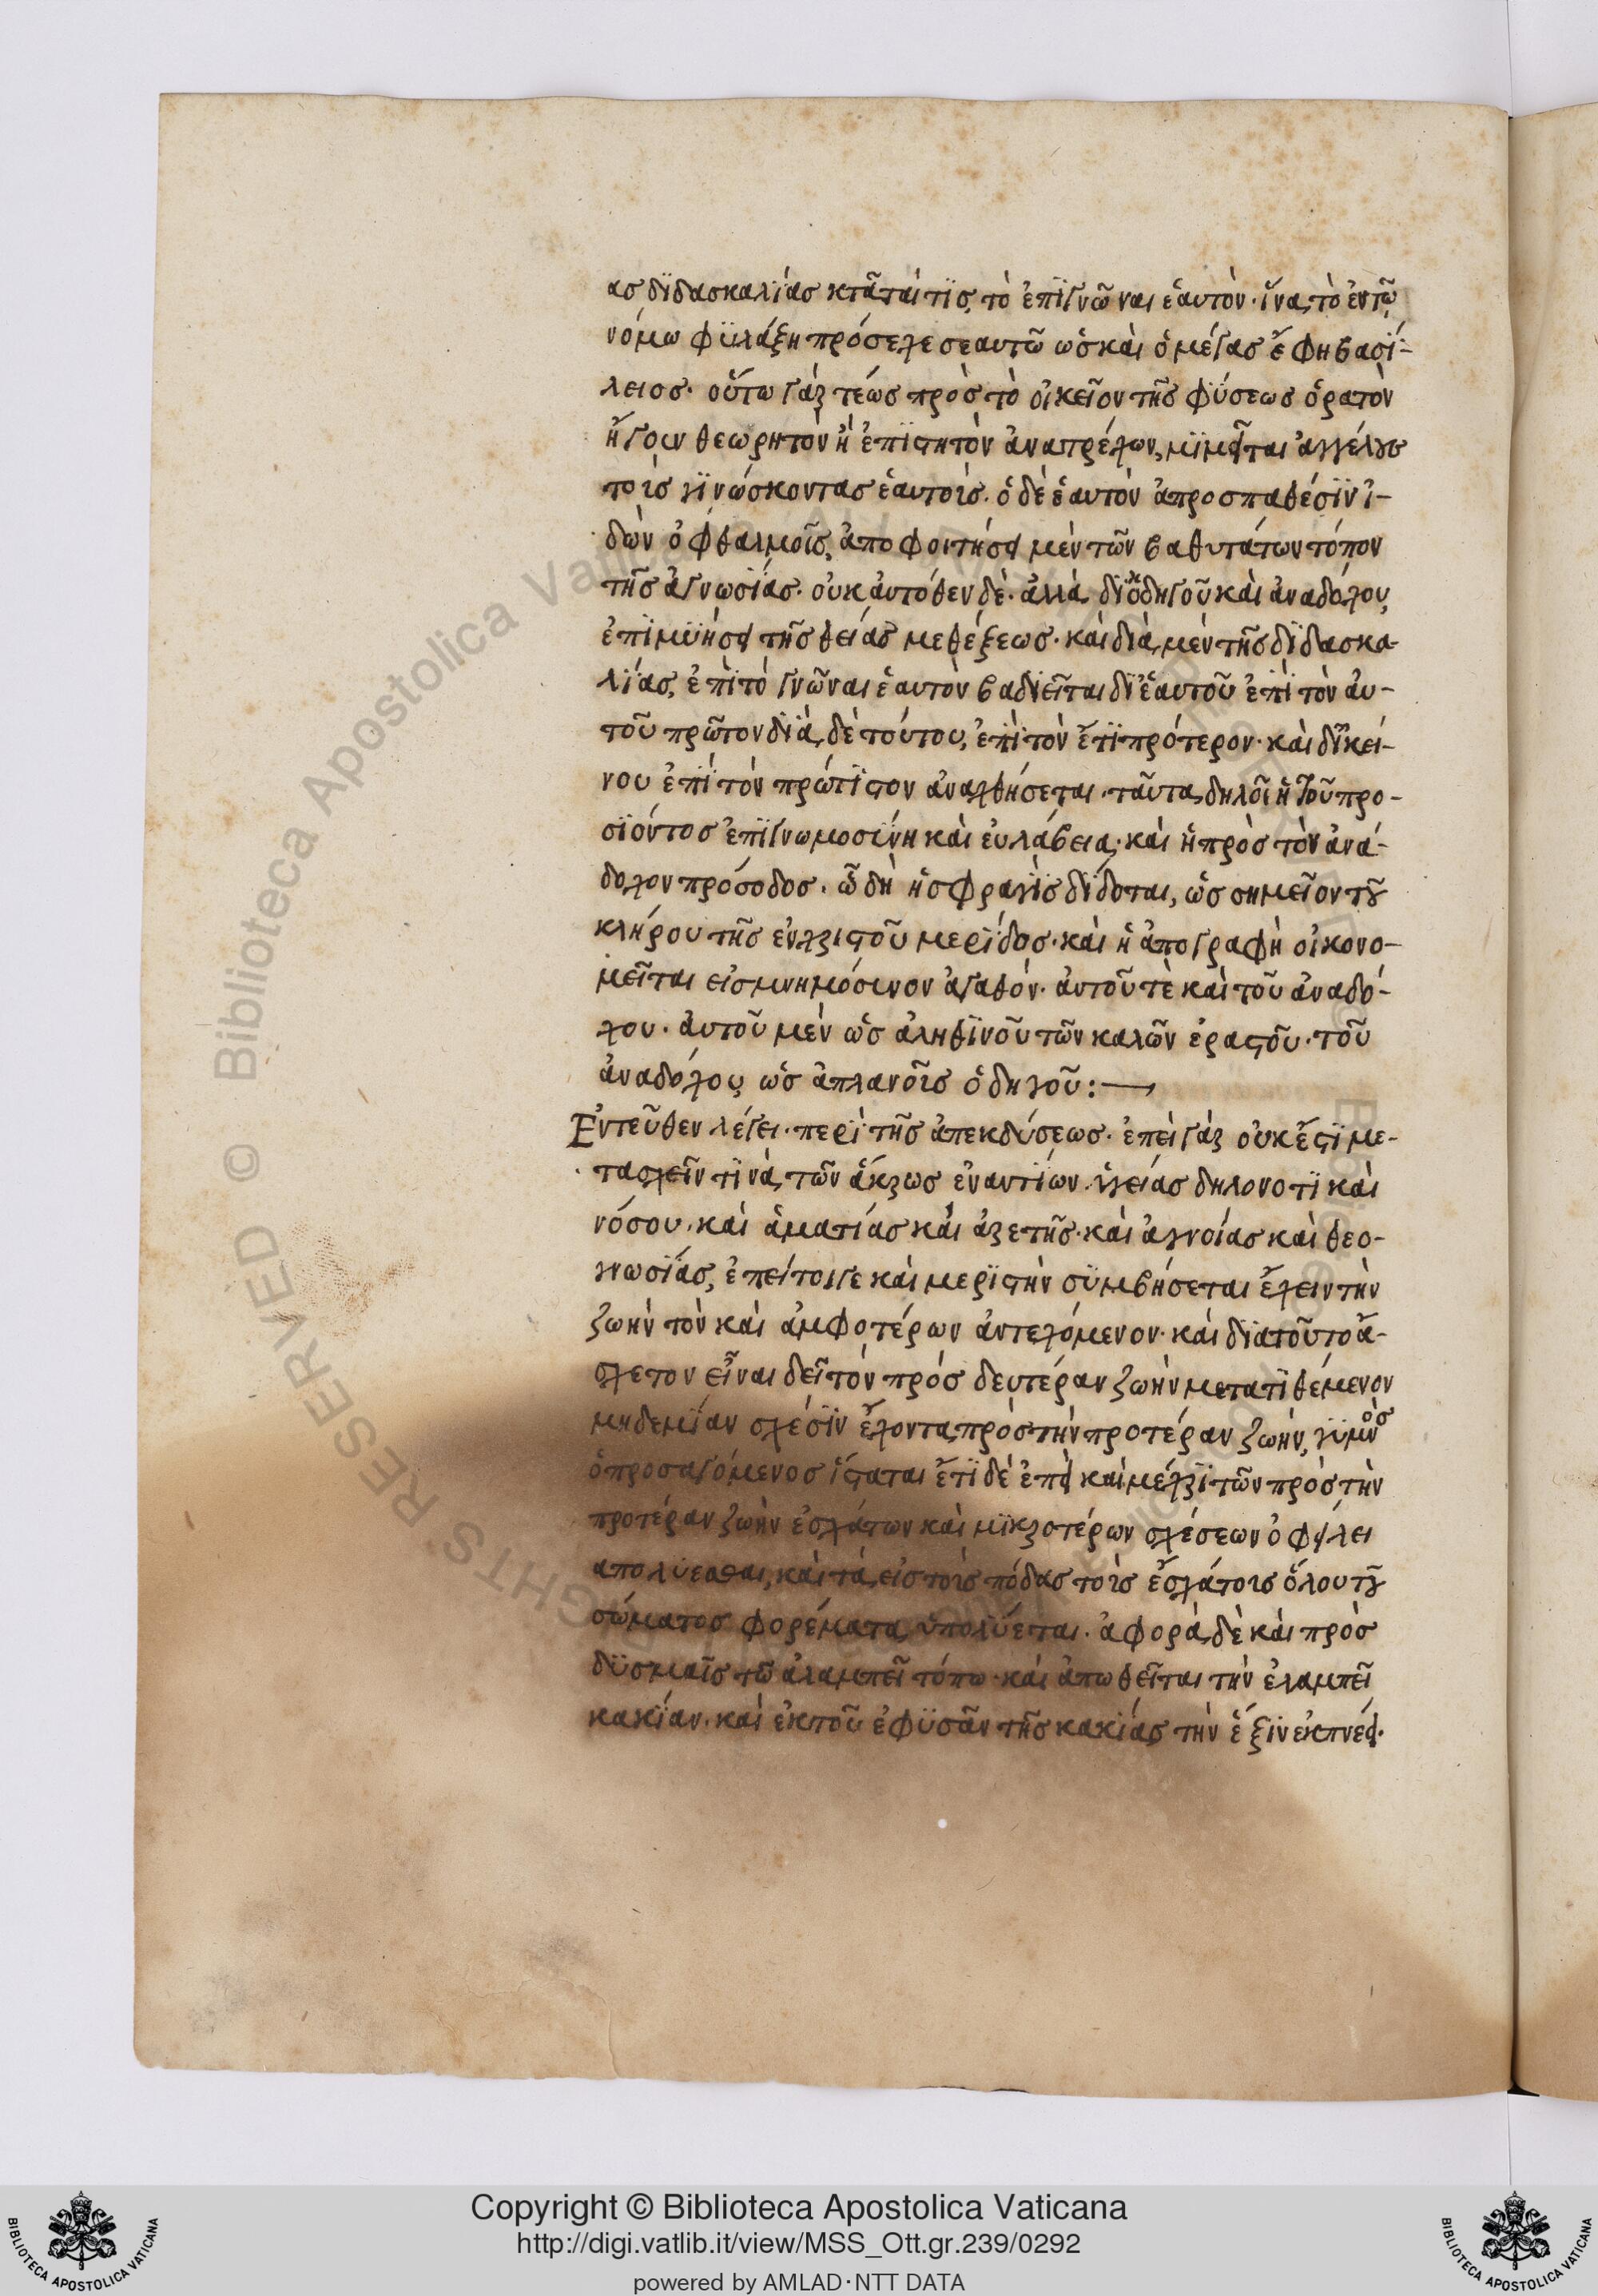 ας διδασκαλίας κτᾶταί τις, τὸ ἐπιγνῶναι ἑαυτὸν· ἵνα τὸ ἐν τῶ
νόμω φϋλάξη πρόσεχε σεαυτῶ ὡς καὶ ὁ μέγας ἔφη βασί-
λειος· οὕτω γὰρ τέως πρὸς τὸ οἰκεῖον τῆς φύσεως ὁρατὸν
ἤγουν θεωρητὸν ἢ ἐπϊστητὸν ἀνατρέχων, μϊμεῖται ἀγγέλους
τοὺς γϊνώσκοντας ἑαυτοὺς· ὁ δὲ ἑαυτὸν ἀπροσπαθέσϊν ἰ-
δὼν ὀφθαλμοῖς, ἀποφοιτήσει μὲν τῶν βαθυτάτων τόπον
τῆς ἀγνωσίας· οὐκ αὐτόθεν δὲ· ἀλλὰ δϊ ὁδηγοῦ καὶ ἀναδόχου,
ἐπιμϋήσει τῆς θείας μεθέξεως· καὶ διὰ μὲν τῆς διδασκα-
λίας, ἐπὶ τὸ γνῶναι ἑαυτὸν βαδιεῖται δι ἑαυτοῦ ἐπὶ τὸν αὐ-
τοῦ πρῶτον διὰ δὲ τούτου, ἐπὶ τὸν ἔτι πρότερον· καὶ δι κεί-
νου ἐπὶ τὸν πρώτιστον ἀναχθήσεται· ταῦτα δηλοῖ ἡ τοῦ προ-
σϊόντος ἐπϊγνωμοσύνη καὶ εὐλάβεια· καὶ ἡ πρὸς τὸν ἀνά-
δοχον πρόσοδος· ὧ δὴ ἡ σφραγὶς δίδοται, ὡς σημεῖον τοῦ
κλήρου τῆς ἐν χριστοῦ μερίδος· καὶ ἡ ἀπογραφὴ οἰκονο-
μεῖται εἰς μνημόσυνον ἀγαθόν· αὐτοῦ τὲ καὶ τοῦ ἀναδό-
χου· αὐτοῦ μὲν ὡς ἀληθϊνοῦ τῶν καλῶν ἐραστοῦ· τοῦ
ἀναδόχου ὡς ἀπλανοῦς ὁδηγοῦ:—
Ἐντεῦθεν λέγει· περὶ τῆς ἀπεκδύσεως· ἐπεὶ γὰρ οὐκ ἔστϊ με-
τασχεῖν τϊνὰ τῶν ἄκρως ἐναντίων ὑγείας δηλονοτϊ καὶ
νόσου· καὶ ἁματίας καὶ ἀρετῆς· καὶ ἀγνοίας καὶ θεο-
γνωσίας, ἐπεί τοιγε καὶ μερϊστὴν συμβήσεται ἔχειν τὴν
ζωὴν τὸν καὶ ἀμφοτέρων ἀντεχόμενον· καὶ διατοῦτο ἄ-
σχετον εἶναι δεῖ τὸν πρὸς δευτέραν ζωὴν μετατϊθέμενον
μηδεμίαν σχέσϊν ἔχοντα πρὸς τὴν προτέραν ζωὴν, γϋμνὸς
ὁ προσαγόμενος ἵσταται ἔτϊ δὲ ἐπεὶ καὶ μέχρϊ τῶν πρὸς τὴν
προτέραν ζωὴν ἐσχάτων καὶ μϊκροτέρων σχέσεων ὀφείλει
απολύεσθαι, καὶ τὰ εἰς τοὺς πόδας τοὺς ἐσχάτους ὅλου τοῦ
σώματος φορέματα ὑπολύεται· ἀφορὰ δὲ καὶ πρὸς
δϋσμαῖς τῶ ἀλαμπεῖ τόπω· καὶ ἀπωθεῖται τὴν ἐλαμπεῖ
κακίαν· καὶ ἐκ τοῦ ἐφϋσᾶν τῆς κακίας τὴν ἕξϊν ἐκπνέει·
Copyright © Biblioteca Apostolica Vaticana
http://digi.vatlib.it/view/MSS_Ott.gr.239/0292
powered by AMLAD·NTT DATA